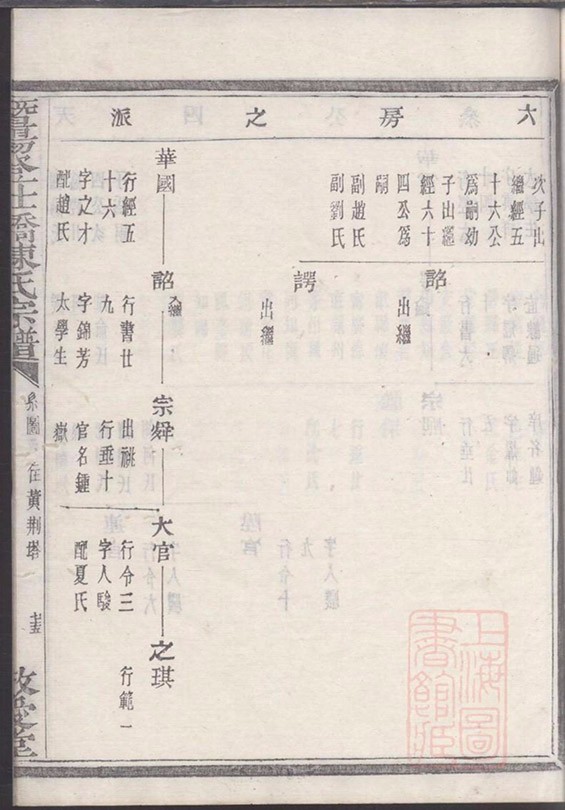 六房之派
次子出
繼經五
十六公
為嗣幼
子出繼
經六十
四公為
嗣
副趙氏
副劉氏
詻
出繼
諤
出繼
華國
行經五
十六
字之才
配趙氏
詻
入繼
行書廿
九
字錦芳
太學生
宗舜
出祧
行垂十
官名鍾
嶽
大官
行令三
字人駿
配夏氏
之琪
行範一
暨陽
橋陳氏宗譜
系圖
在黃荆塔
上海圖
書館藏